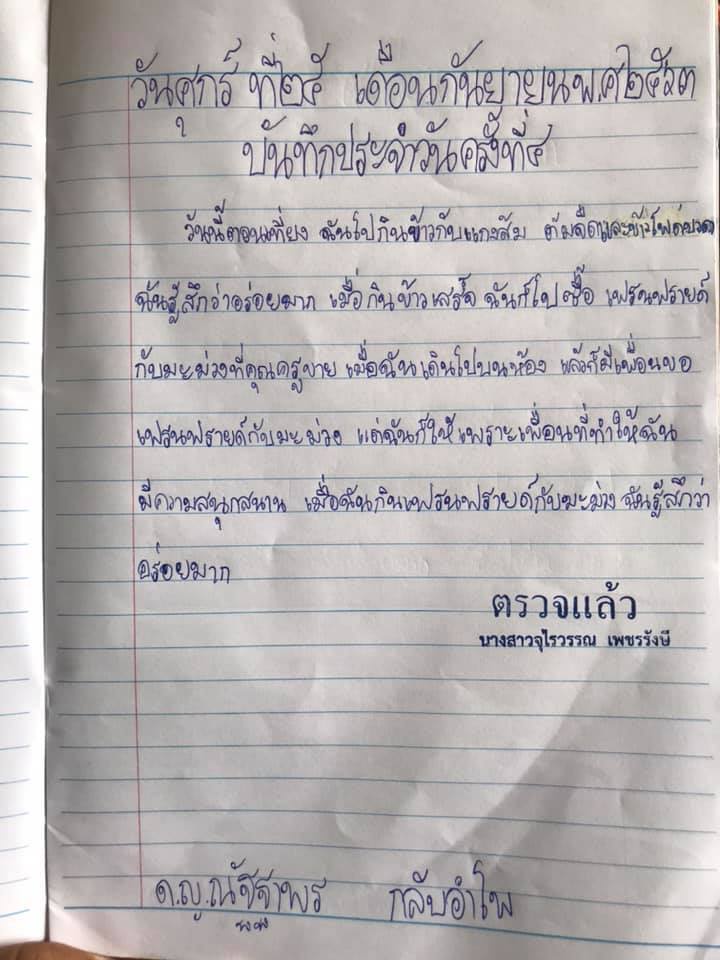 วันศุกร์ ที่๒๕ เดือนกันยายนพ.ศ๒๕๖๓
บันทึกประจำวันครั้งที่๕
วันนี้ตอนเที่ยง ฉันไปกินข้าวกับแกงส้ม ต้มจืดและข้าวโพด
ฉันรู้สึกว่าอร่อยมาก เมื่อกินข้าวเสร็จ ฉันก็ไปซื้อ เฟรนฟรายด์
กับมะม่วงที่คุณครูขาย เมื่อฉันเดินไปบนห้อง แล้วก็มีเพื่อนขอ
เฟรนฟรายด์กับมะม่วง แต่ฉันก็ให้เพราะเพื่อนที่ทำให้ฉัน
มีความสนุกสนาน เมื่อฉันกินเฟรนฟรายด์กับมะม่วง ฉันรู้สึกว่า
อร่อยมาก
ตรวจแล้ว
นางสาวจุไรวรรณ เพชรรังษี
ด.ญ.ณัชชาพร กลับอำไพ